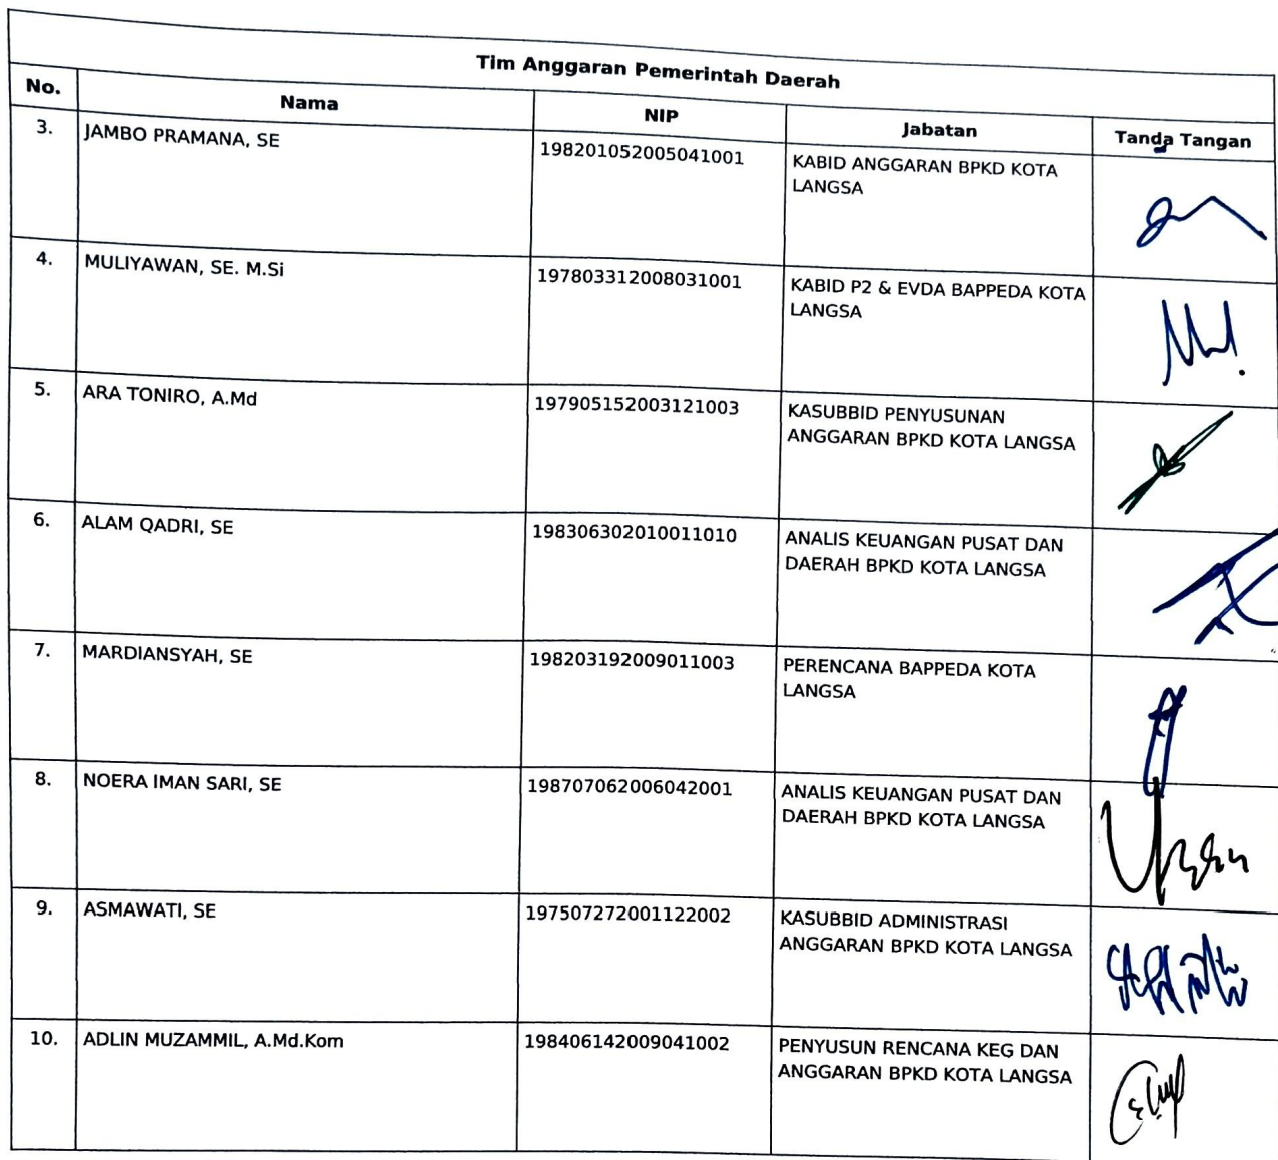 Tim Anggaran Pemerintah Daerah
No. Nama NIP Jabatan Tanda Tangan
3. JAMBO PRAMANA, SE 198201052005041001 KABID ANGGARAN BPKD KOTA
LANGSA
4. MULIYAWAN, SE. M.Si 197803312008031001 KABID P2 & EVDA BAPPEDA KOTA
LANGSA
5. ARA TONIRO, A.Md 197905152003121003 KASUBBID PENYUSUNAN
ANGGARAN BPKD KOTA LANGSA
6. ALAM QADRI, SE 198306302010011010 ANALIS KEUANGAN PUSAT DAN
DAERAH BPKD KOTA LANGSA
7. MARDIANSYAH, SE 198203192009011003 PERENCANA BAPPEDA KOTA
LANGSA
8. NOERA IMAN SARI, SE 198707062006042001 ANALIS KEUANGAN PUSAT DAN
DAERAH BPKD KOTA LANGSA
9. ASMAWATI, SE 197507272001122002 KASUBBID ADMINISTRASI
ANGGARAN BPKD KOTA LANGSA
10. ADLIN MUZAMMIL, A.Md.Kom 198406142009041002 PENYUSUN RENCANA KEG DAN
ANGGARAN BPKD KOTA LANGSA